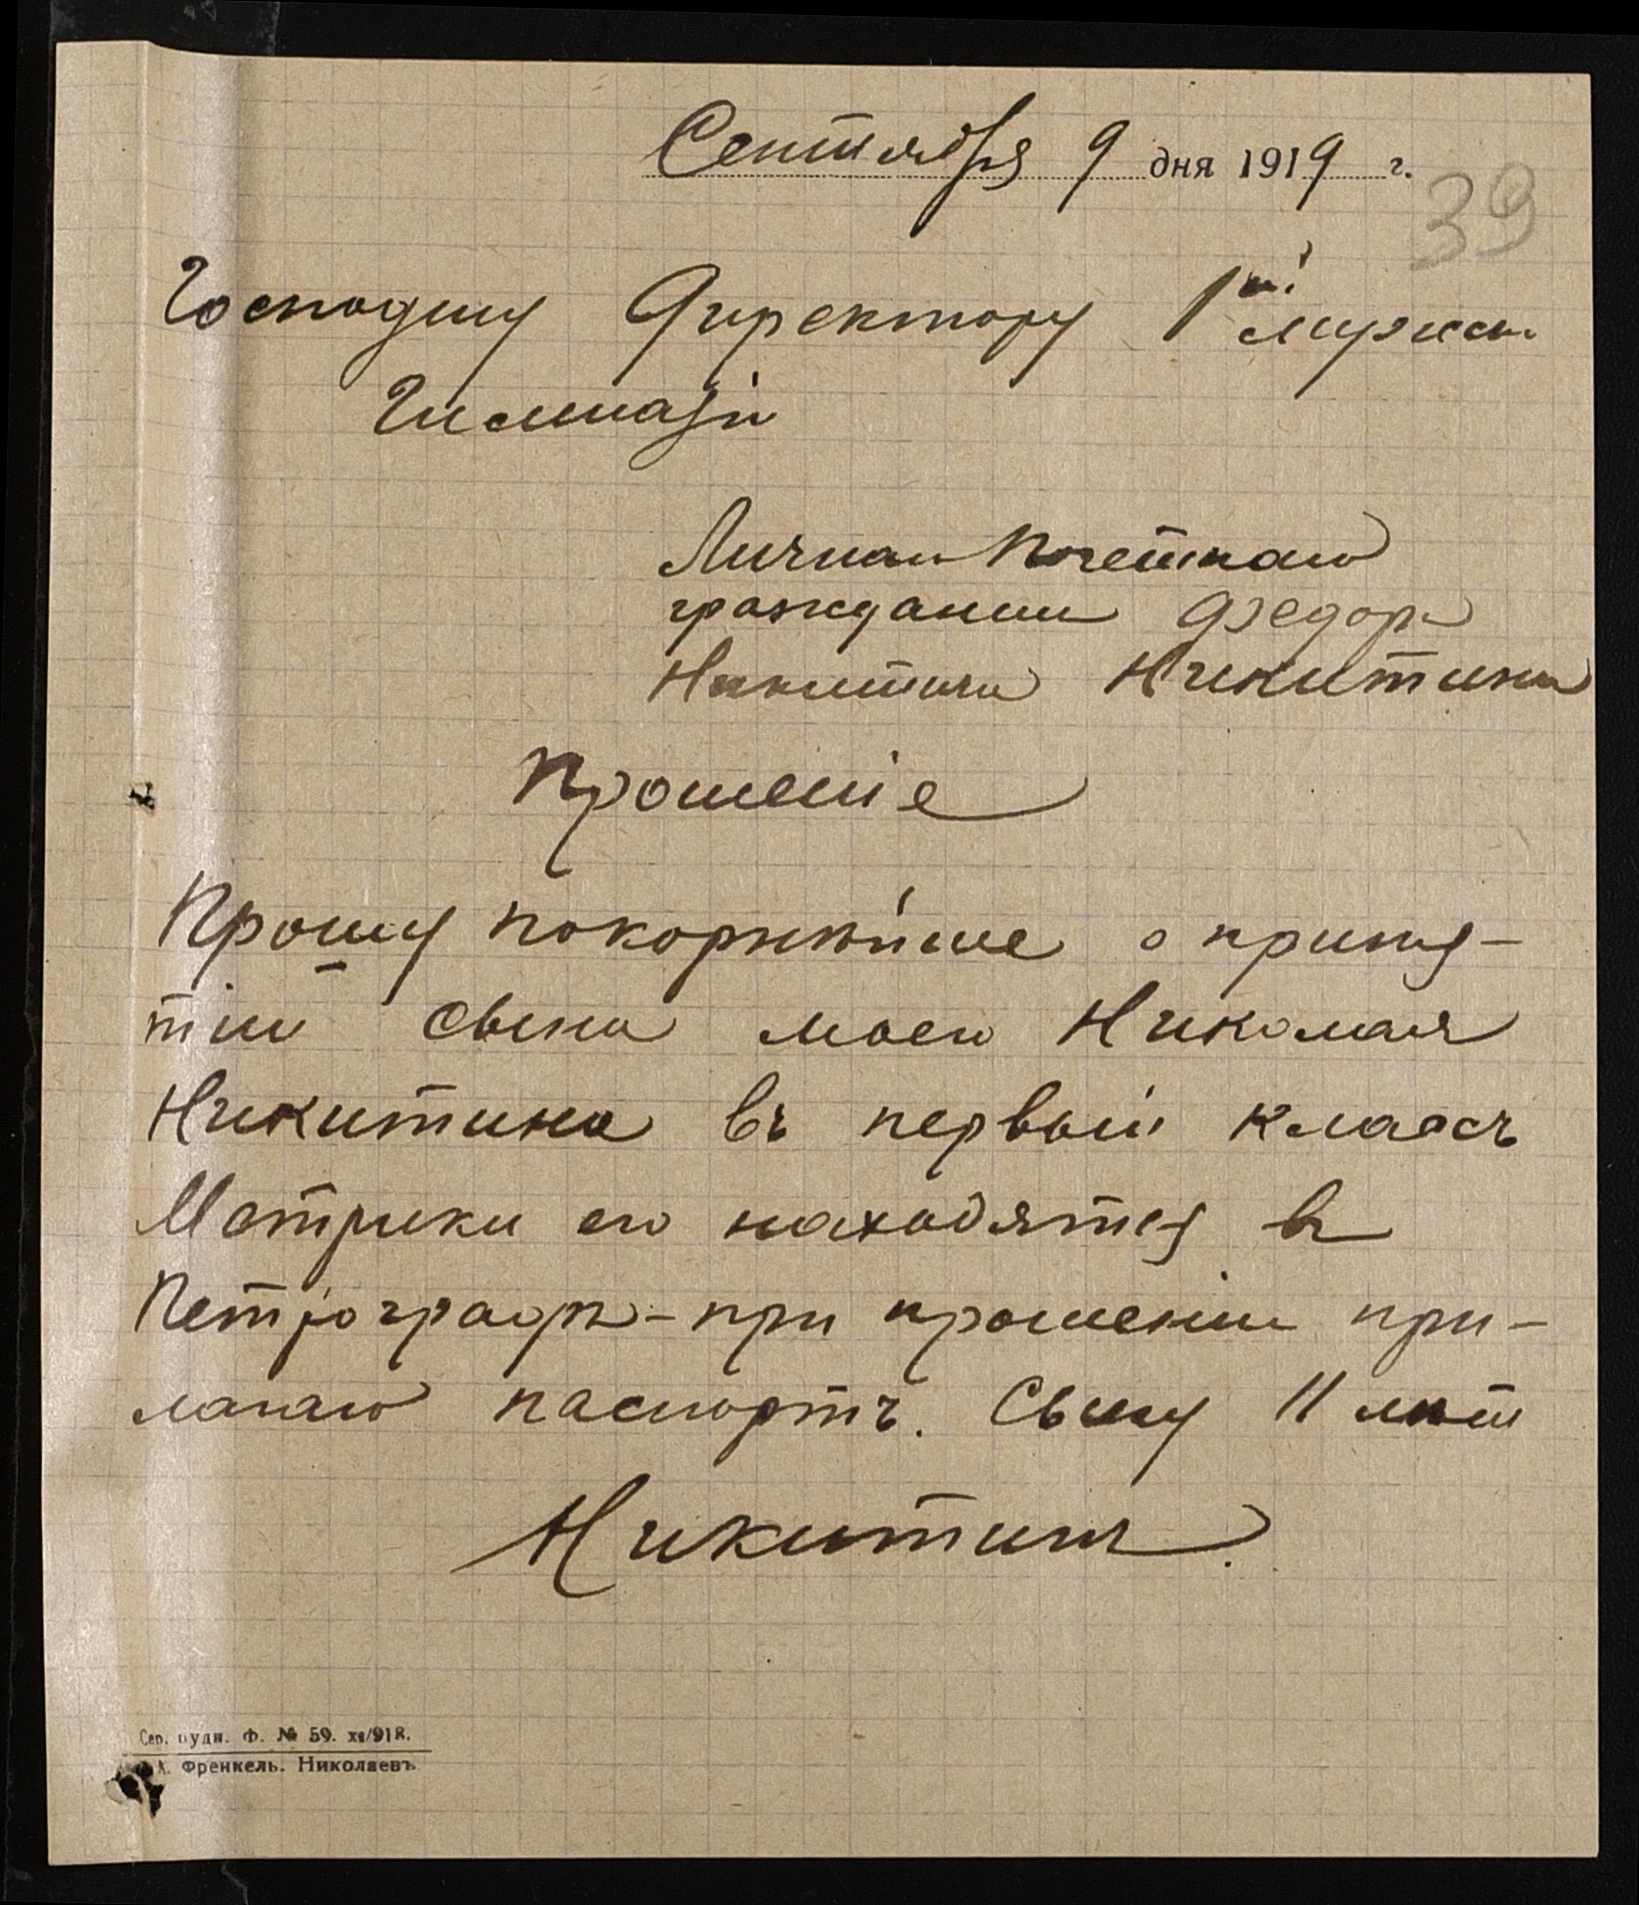 Сентября 9 дня 1919 г.
39
Господину Директору 1ой мужск.
Гимназіи
Личнаго Почетнаго
гражданина Федора
Никитича Никитина
Прошеніе
Прошу покорнѣйше о приня-
тіи сына моего Николая
Никитина въ первый классъ
Метрики его находятся въ
Петроградѣ - при прошеніи при-
лагаю паспортъ. Сыну 11 лѣт
Никитинъ
Ф. № 59. xii/918.
Френкель. Николаевъ